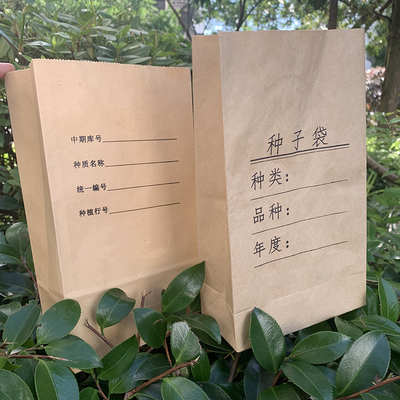 中期库号
种质名称
统一编号
种植行号
种子袋
种类：
品种：
年度：